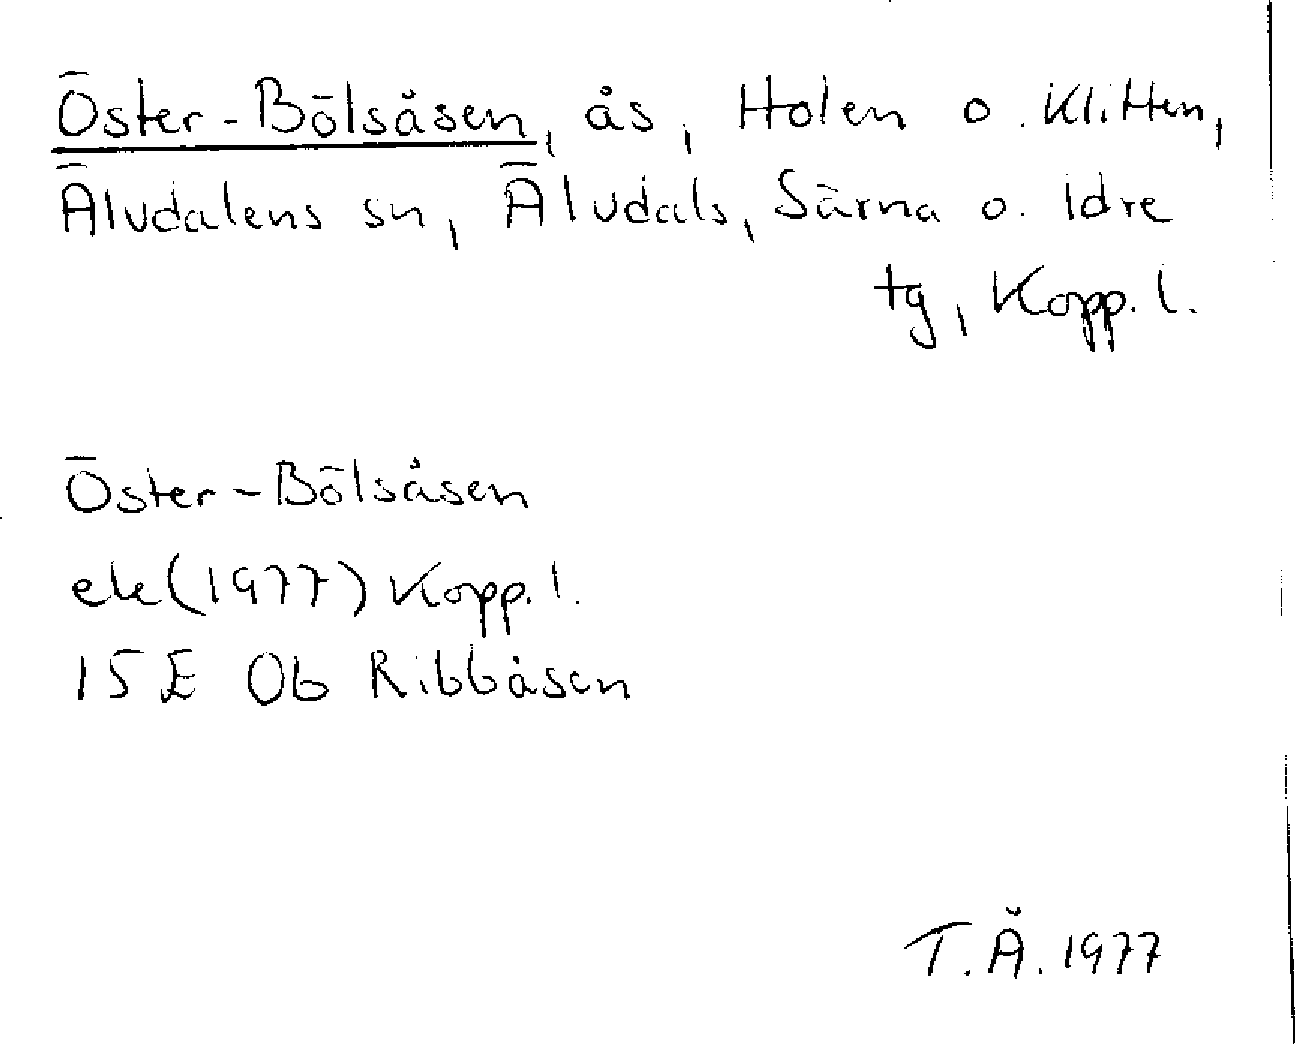 Öster-Bölsåsen, ås, Holen o. Klitten,
Älvdalens sn, Älvdals, Särna o. Idre
tg, Kopp. l.
Öster-Bölsåsen
ek (1977) Kopp. l.
15E 0b Ribbåsen
T.Å. 1977